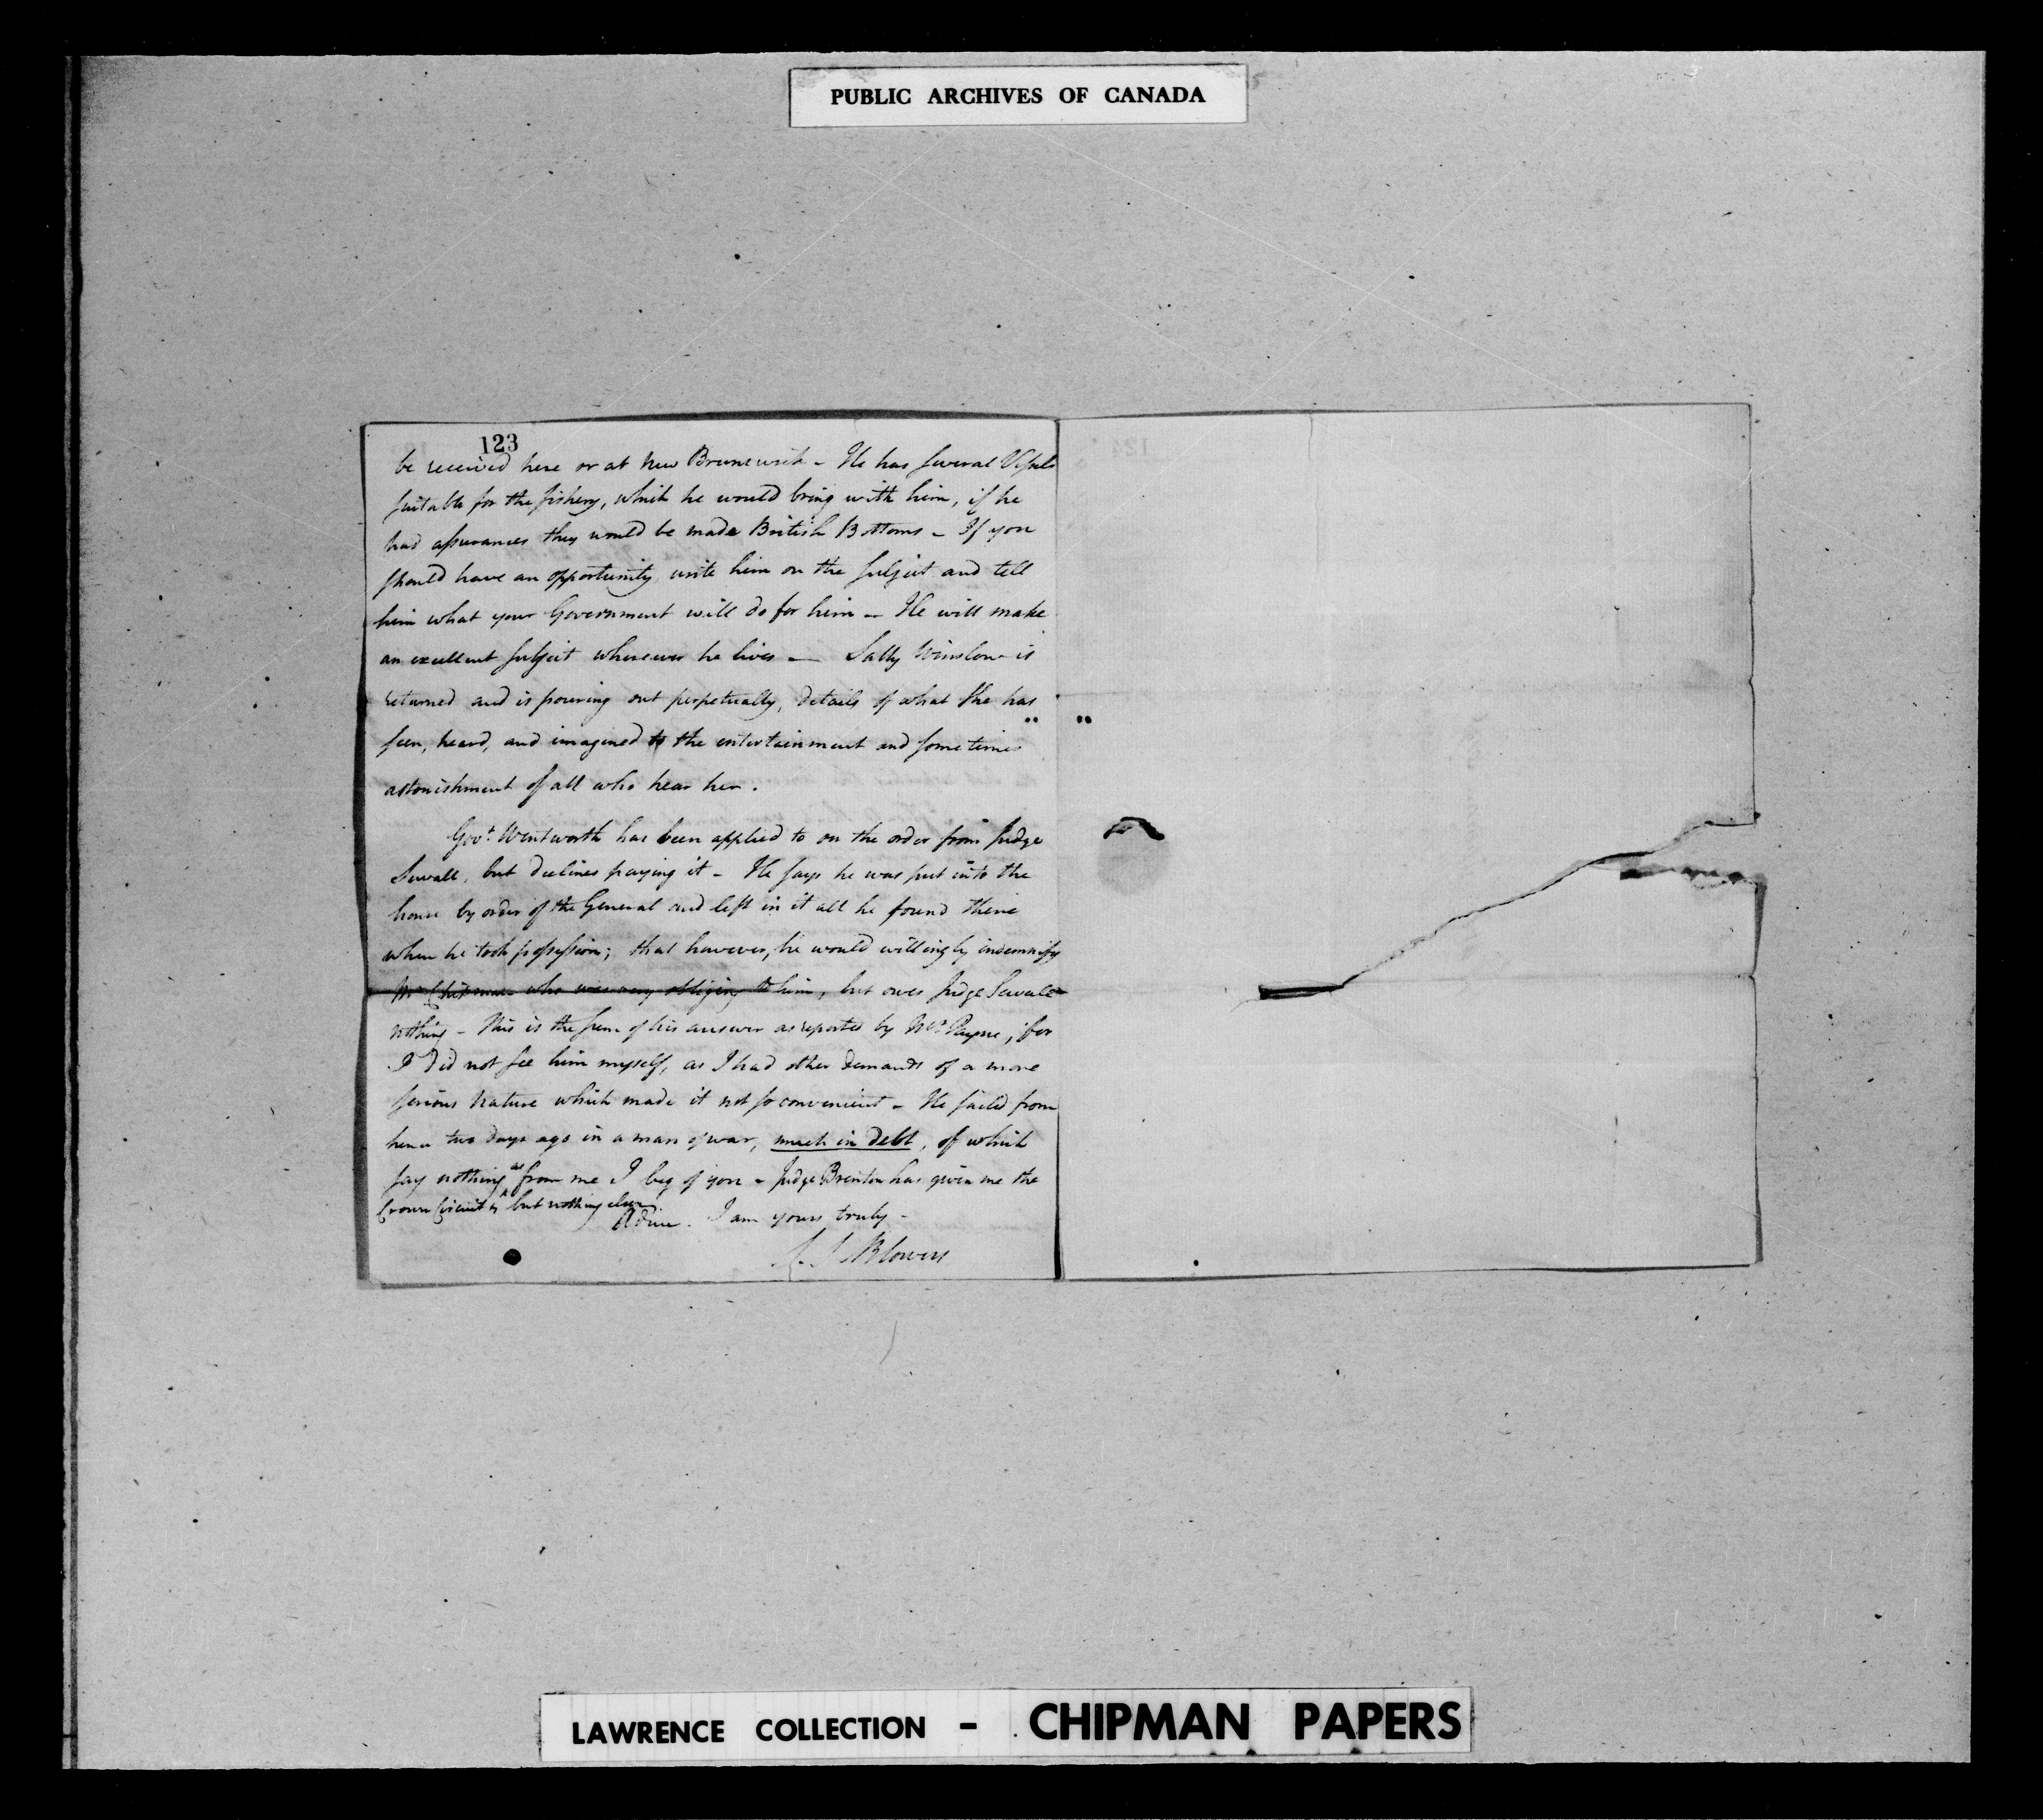 PUBLIC ARCHIVES OF CANADA
123
be received here or at New Brunswick - He has several Vessels
suitable for the fishery, which he would bring with him, if he
had assurances they would be made British Bottoms - If you
should have an opportunity write him on the subject and tell
him what your Government will do for him - He will make
an excellent subject wherever he lives - Sally Winslow is
returned and is pouring out perpetually, details of what she has
seen, heard, and imagined to the entertainment and sometimes
astonishment of all who hear her.
Govr. Wentworth has been applied to on the order from Judge
Sewall, but declines paying it - He says he was put into the
house by order of the General and left in it all he found there
when he took possession; that however, he would willingly indemnify
Mr Chipman who was very obliging to him, but owes Judge Sewall
nothing - This is the sum of his answer as reported by Mr. Payne, for
I did not see him myself, as I had other demands of a more
serious nature which made it not so convenient - He sailed from
hence two days ago in a man of war, much in debt, of which
say nothing as from me I beg of you - Judge Brenton has given me the
Crown Circuits but nothing else.
Adieu. I am yours truly -
S. S. Blowers
LAWRENCE COLLECTION - CHIPMAN PAPERS